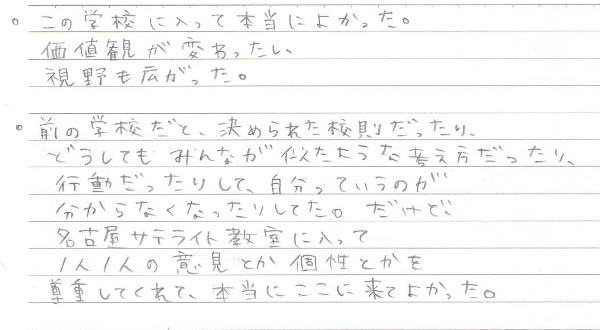 。この学校に入って本当によかった。
価値観が変わったし、
視野も広がった。
。前の学校だと、決められた校則だったり、
どうしてもみんなが似たような考え方だったり、
行動だったりして、自分っていうのが
分からなくなったりしてた。だけど、
名古屋サテライト教室に入って
1人1人の意見とか個性とかを
尊重してくれて、本当にここに来てよかった。